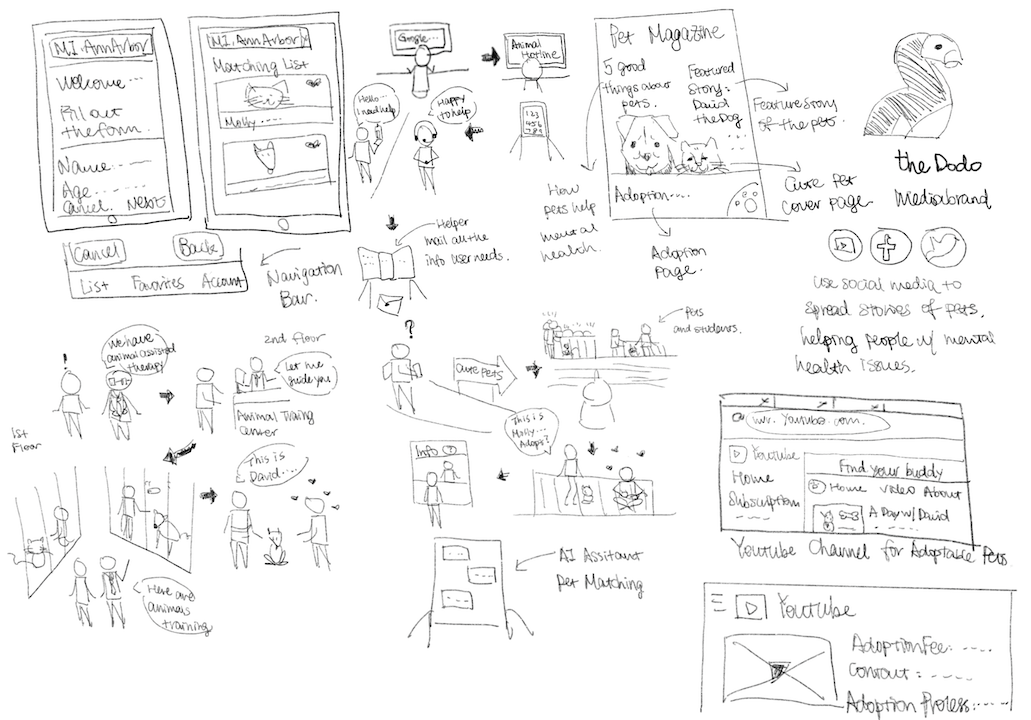 MI. AnnArbor
Welcome...
Fill out
the form.
Name...
Age......
Cancel
Next
MI. AnnArbor
Matching List
Molly...
Cancel
Back
List
Favorites
Account
Navigation
Bar.
Google...
Animal
Hotline
Hello...
I need help
Happy
to help
1 2 3
4 5 6
7 8 9
Helper
mail all the
info user needs.
Pet Magazine
5 good
things about
pets.
Featured
Story:
David
the Dog
Adoption....
Feature Story
of the pets.
Cure Pet
Cover page
How
pets help
mental
health.
Adoption
Page.
the Dodo
Mediabrand
use social media to
spread stories of pets,
helping people w/ mental
health issues.
!
We have
animal assisted
therapy
2nd Floor
Let me
guide you
Animal Traing
Center
1st
Floor
This is
David....
Here are
animals
training
?
Cute Pets
Pets
and students.
This is
Molly...
Adopt?
Info ?
AI Assitant
Pet Matching
www. Youtube.com.
Youtube
Home
Subscription
----
Find your buddy
Home Video About
A Day w/ David
Youtube Channel for Adoptable Pets
Youtube
Adoption Fee: ----
Contact: ----
Adoption Process:----